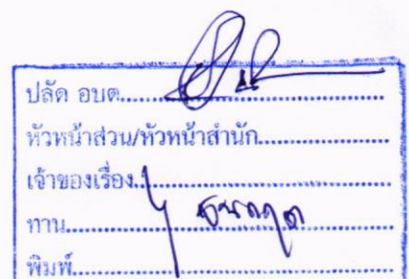 ปลัด อบต..................
หัวหน้าส่วน/หัวหน้าสำนัก..................
เจ้าของเรื่อง..................
ทาน..................
พิมพ์..................